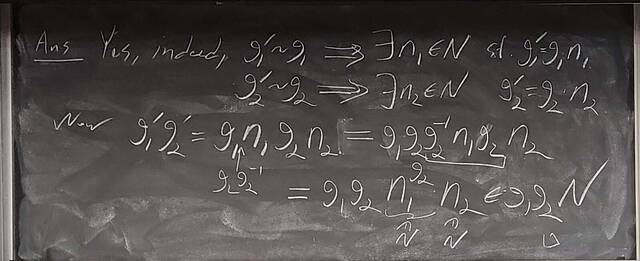 Ans Yes, indeed, g₁' ~ g₁ ⟹ ∃ n₁ ∈ N s.t. g₁' = g₁n₁
g₂' ~ g₂ ⟹ ∃ n₂ ∈ N g₂' = g₂·n₂
Now g₁'g₂' = g₁n₁g₂n₂ = g₁g₂g₂⁻¹n₁g₂n₂
g₂g₂⁻¹ = g₁g₂ n₁^g₂ n₂ ∈ g₁g₂N
∩ ∩
N N □